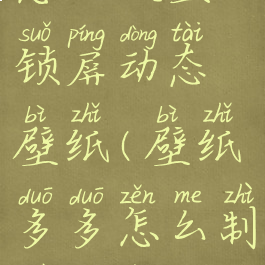 suǒ píng dòng tài
锁屏动态
bì zhǐ bì zhǐ
壁纸(壁纸
duō duō zěn me zhì
多多怎么制